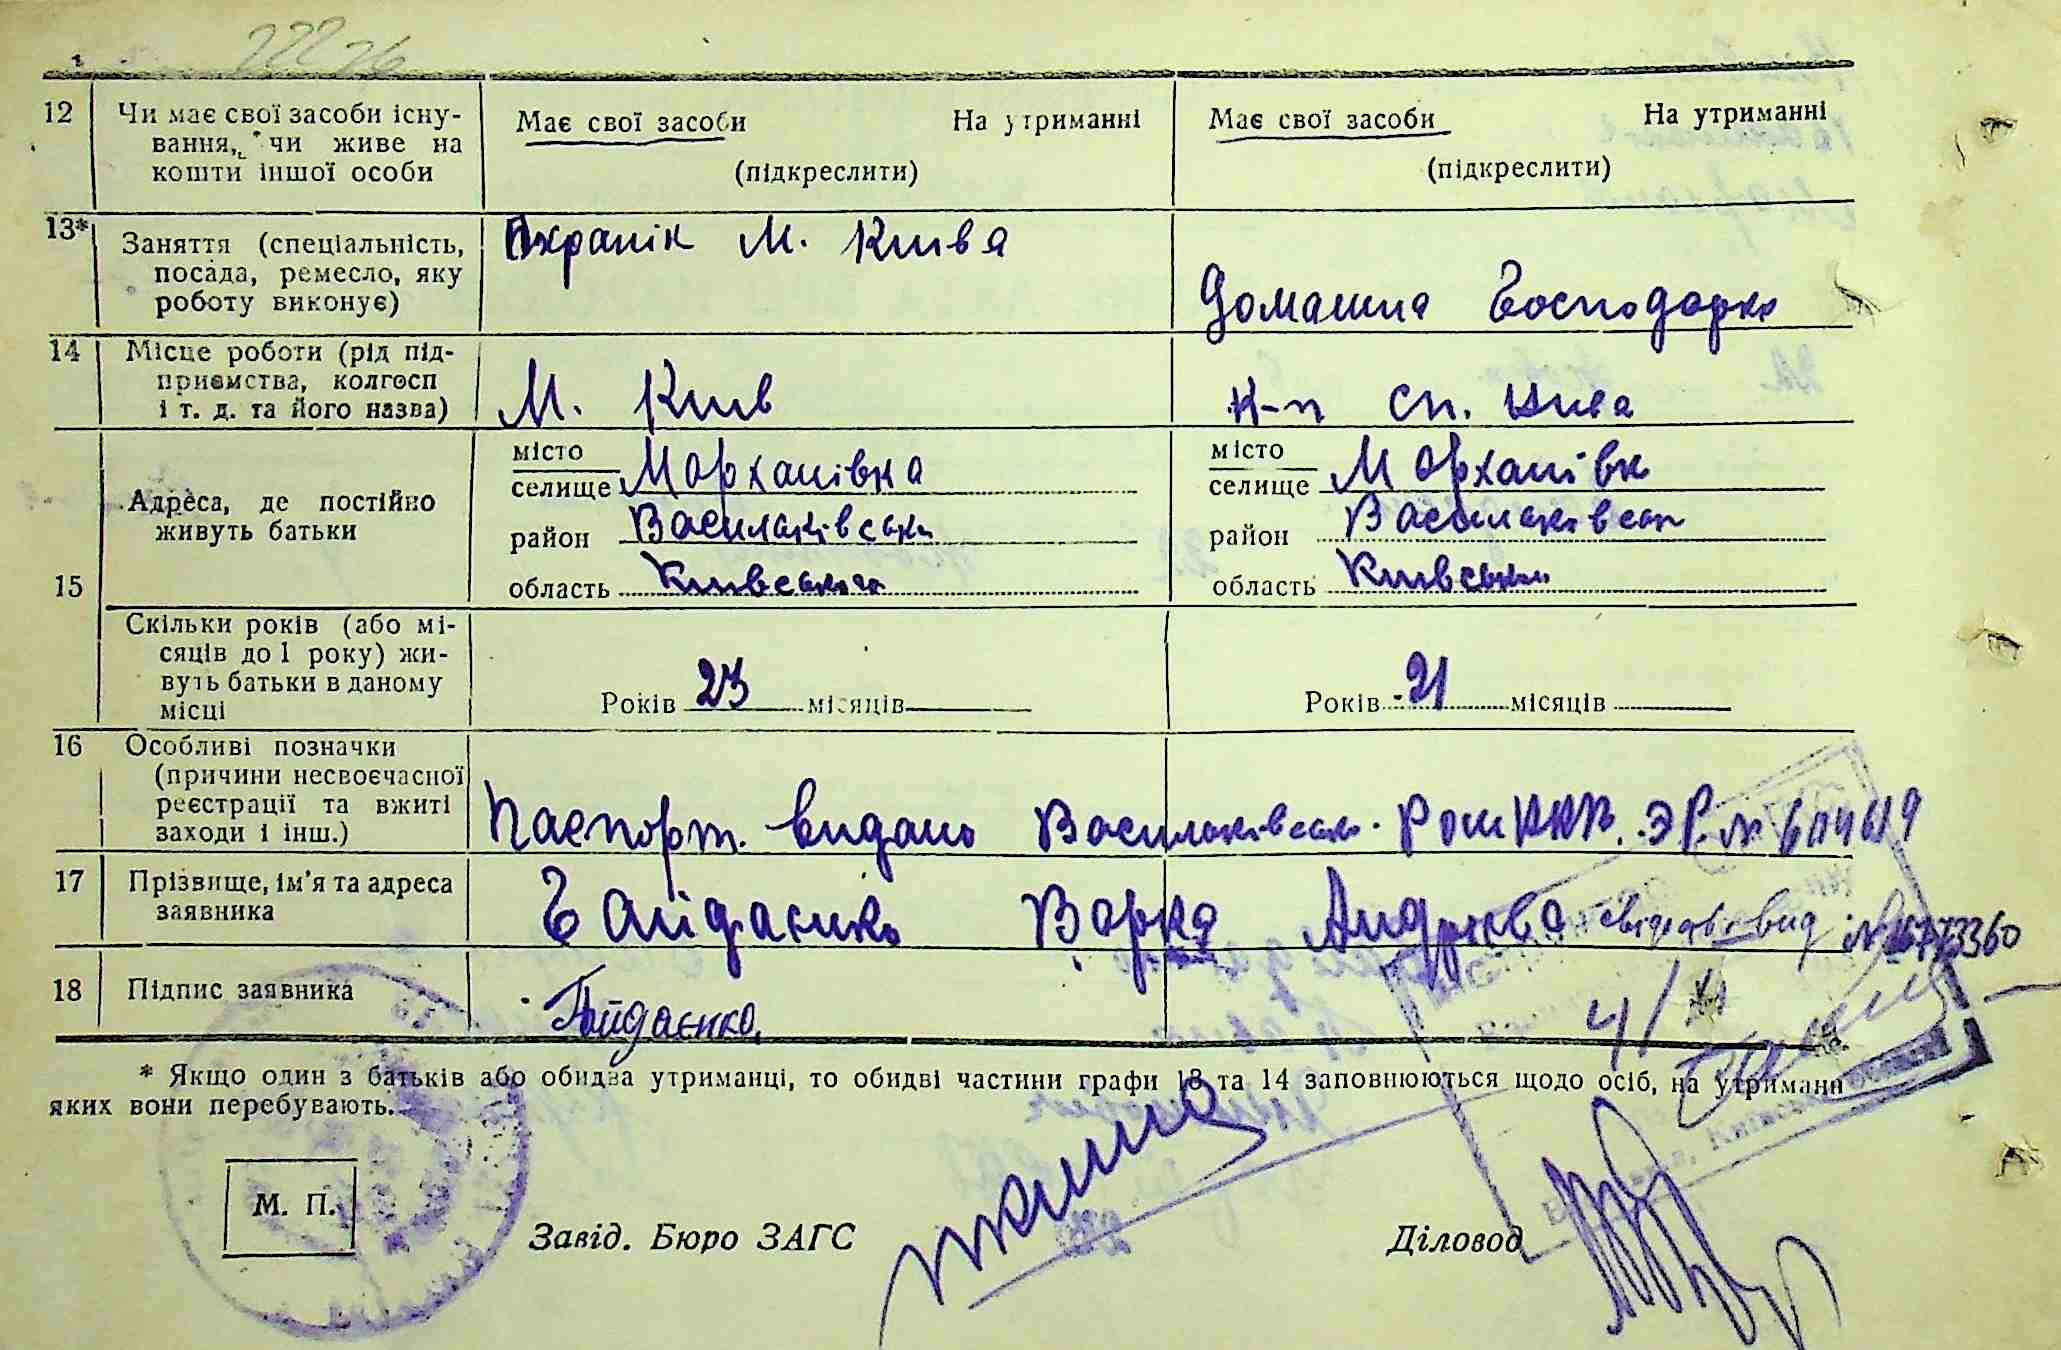 22276
12 Чи має свої засоби існу-
вання, чи живе на
кошти іншої особи
Має свої засоби На утриманні
(підкреслити)
Має свої засоби На утриманні
(підкреслити)
13* Заняття (спеціальність,
посада, ремесло, яку
роботу виконує)
Охранік М. Київа
Домашна Господарка
14 Місце роботи (рід під-
приємства, колгосп
і т. д. та його назва)
М. Київ
к-п сп. Нива
15
Адреса, де постійно
живуть батьки
місто
селище Марханівка
район Васильківськи
область Київського
місто
селище Марханівк
район Васильківськ
область Київськи
Скільки років (або мі-
сяців до 1 року) жи-
вуть батьки в даному
місці
Років 23 місяців
Років 21 місяців
16 Особливі позначки
(причини несвоєчасної
реєстрації та вжиті
заходи і інш.)
Паспорт. видано Васильківськ.
17 Прізвище, ім'я та адреса
заявника
Гайдаєнко Варка
18 Підпис заявника
Гайдаєнко
* Якщо один з батьків або обидва утриманці, то обидві частини графи 13 та 14 заповнюються щодо осіб, на утриманні
яких вони перебувають.
М. П.
Завід. Бюро ЗАГС
Діловод